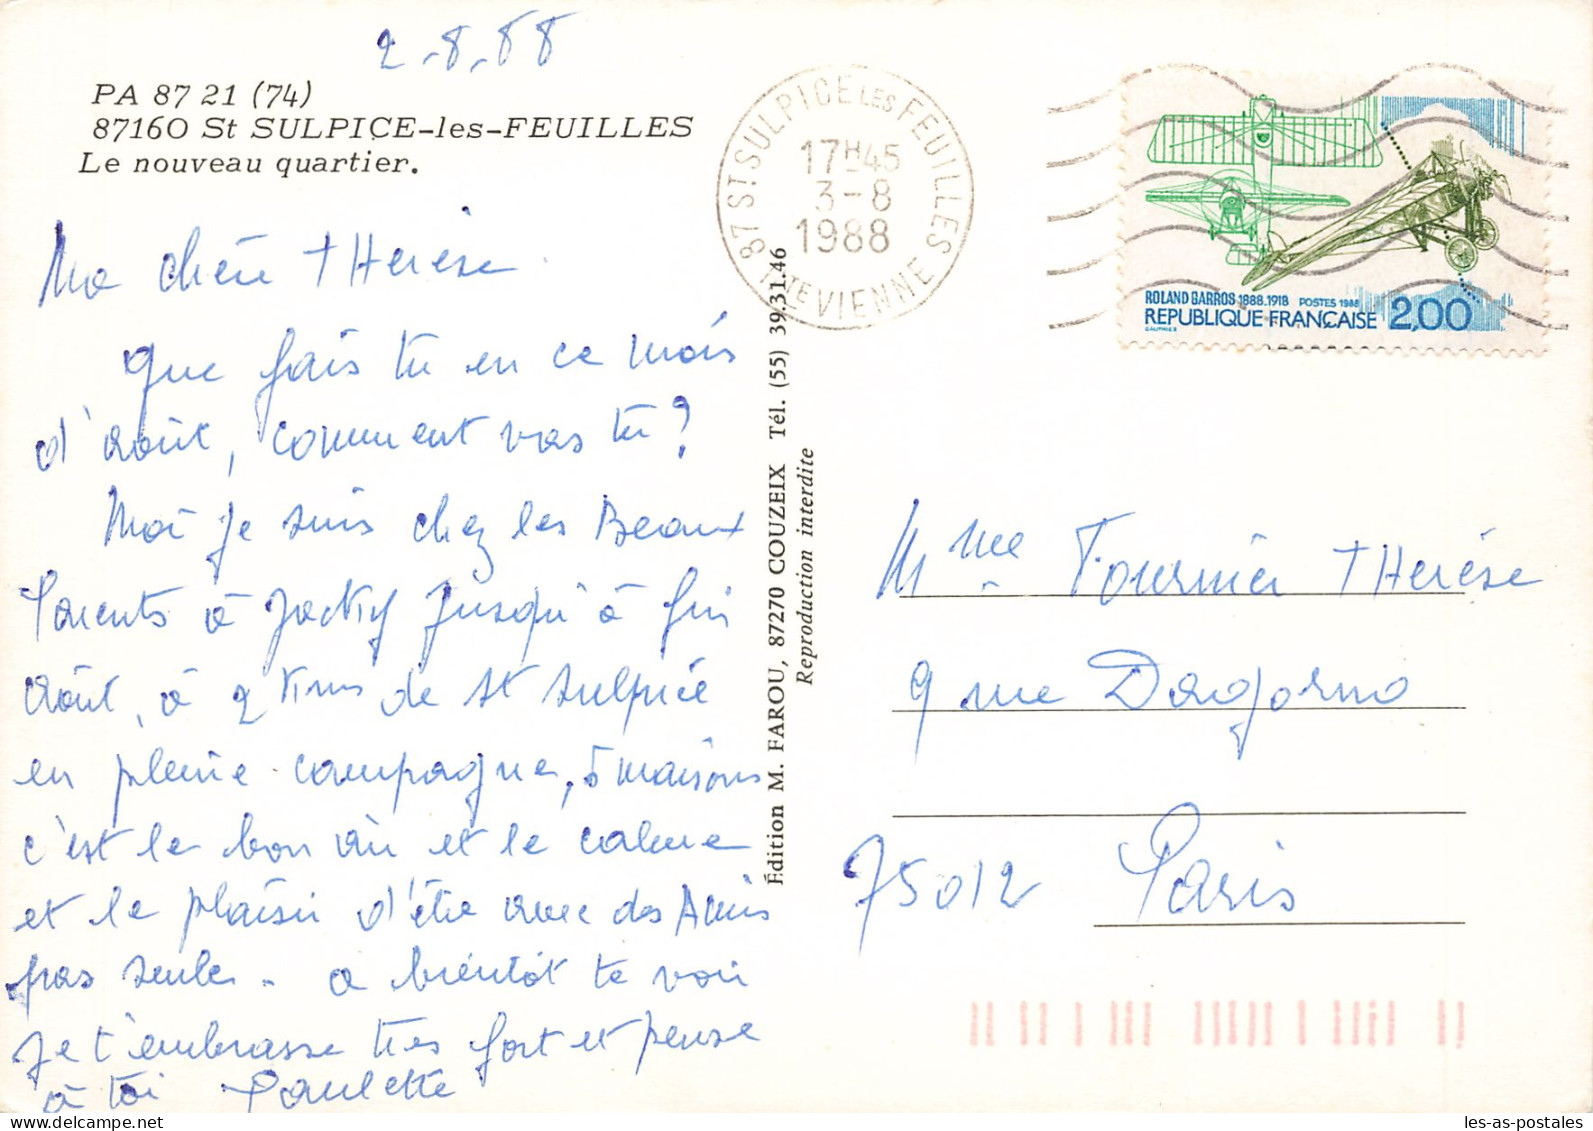 2-8-88
PA 87 21 (74)
87160 St SULPICE-les-FEUILLES
Le nouveau quartier.
Ma chère thérèse
que fais tu en ce mois
d'août, comment vas tu ?
Moi je suis chez les Beaux
Parents à Jacky jusqu'à fin
août, à 2 kms de st sulpice
en pleine campagne, 5 maisons
c'est le bon air et le calme
et le plaisir d'être avec des Amis
pas seule - a bientôt te voir
je t'embrasse très fort et pense
à toi Paulette
Édition M. FAROU, 87270 COUZEIX Tél. (55) 39.31.46
Reproduction interdite
87 ST SULPICE LES FEUILLES
17H45
3-8
1988
HTE VIENNE
ROLAND GARROS 1888.1918 POSTES 1988
REPUBLIQUE FRANÇAISE 2,00
Mme Fournier thérèse
9 rue Dagorno
75012 Paris
les-as-postales